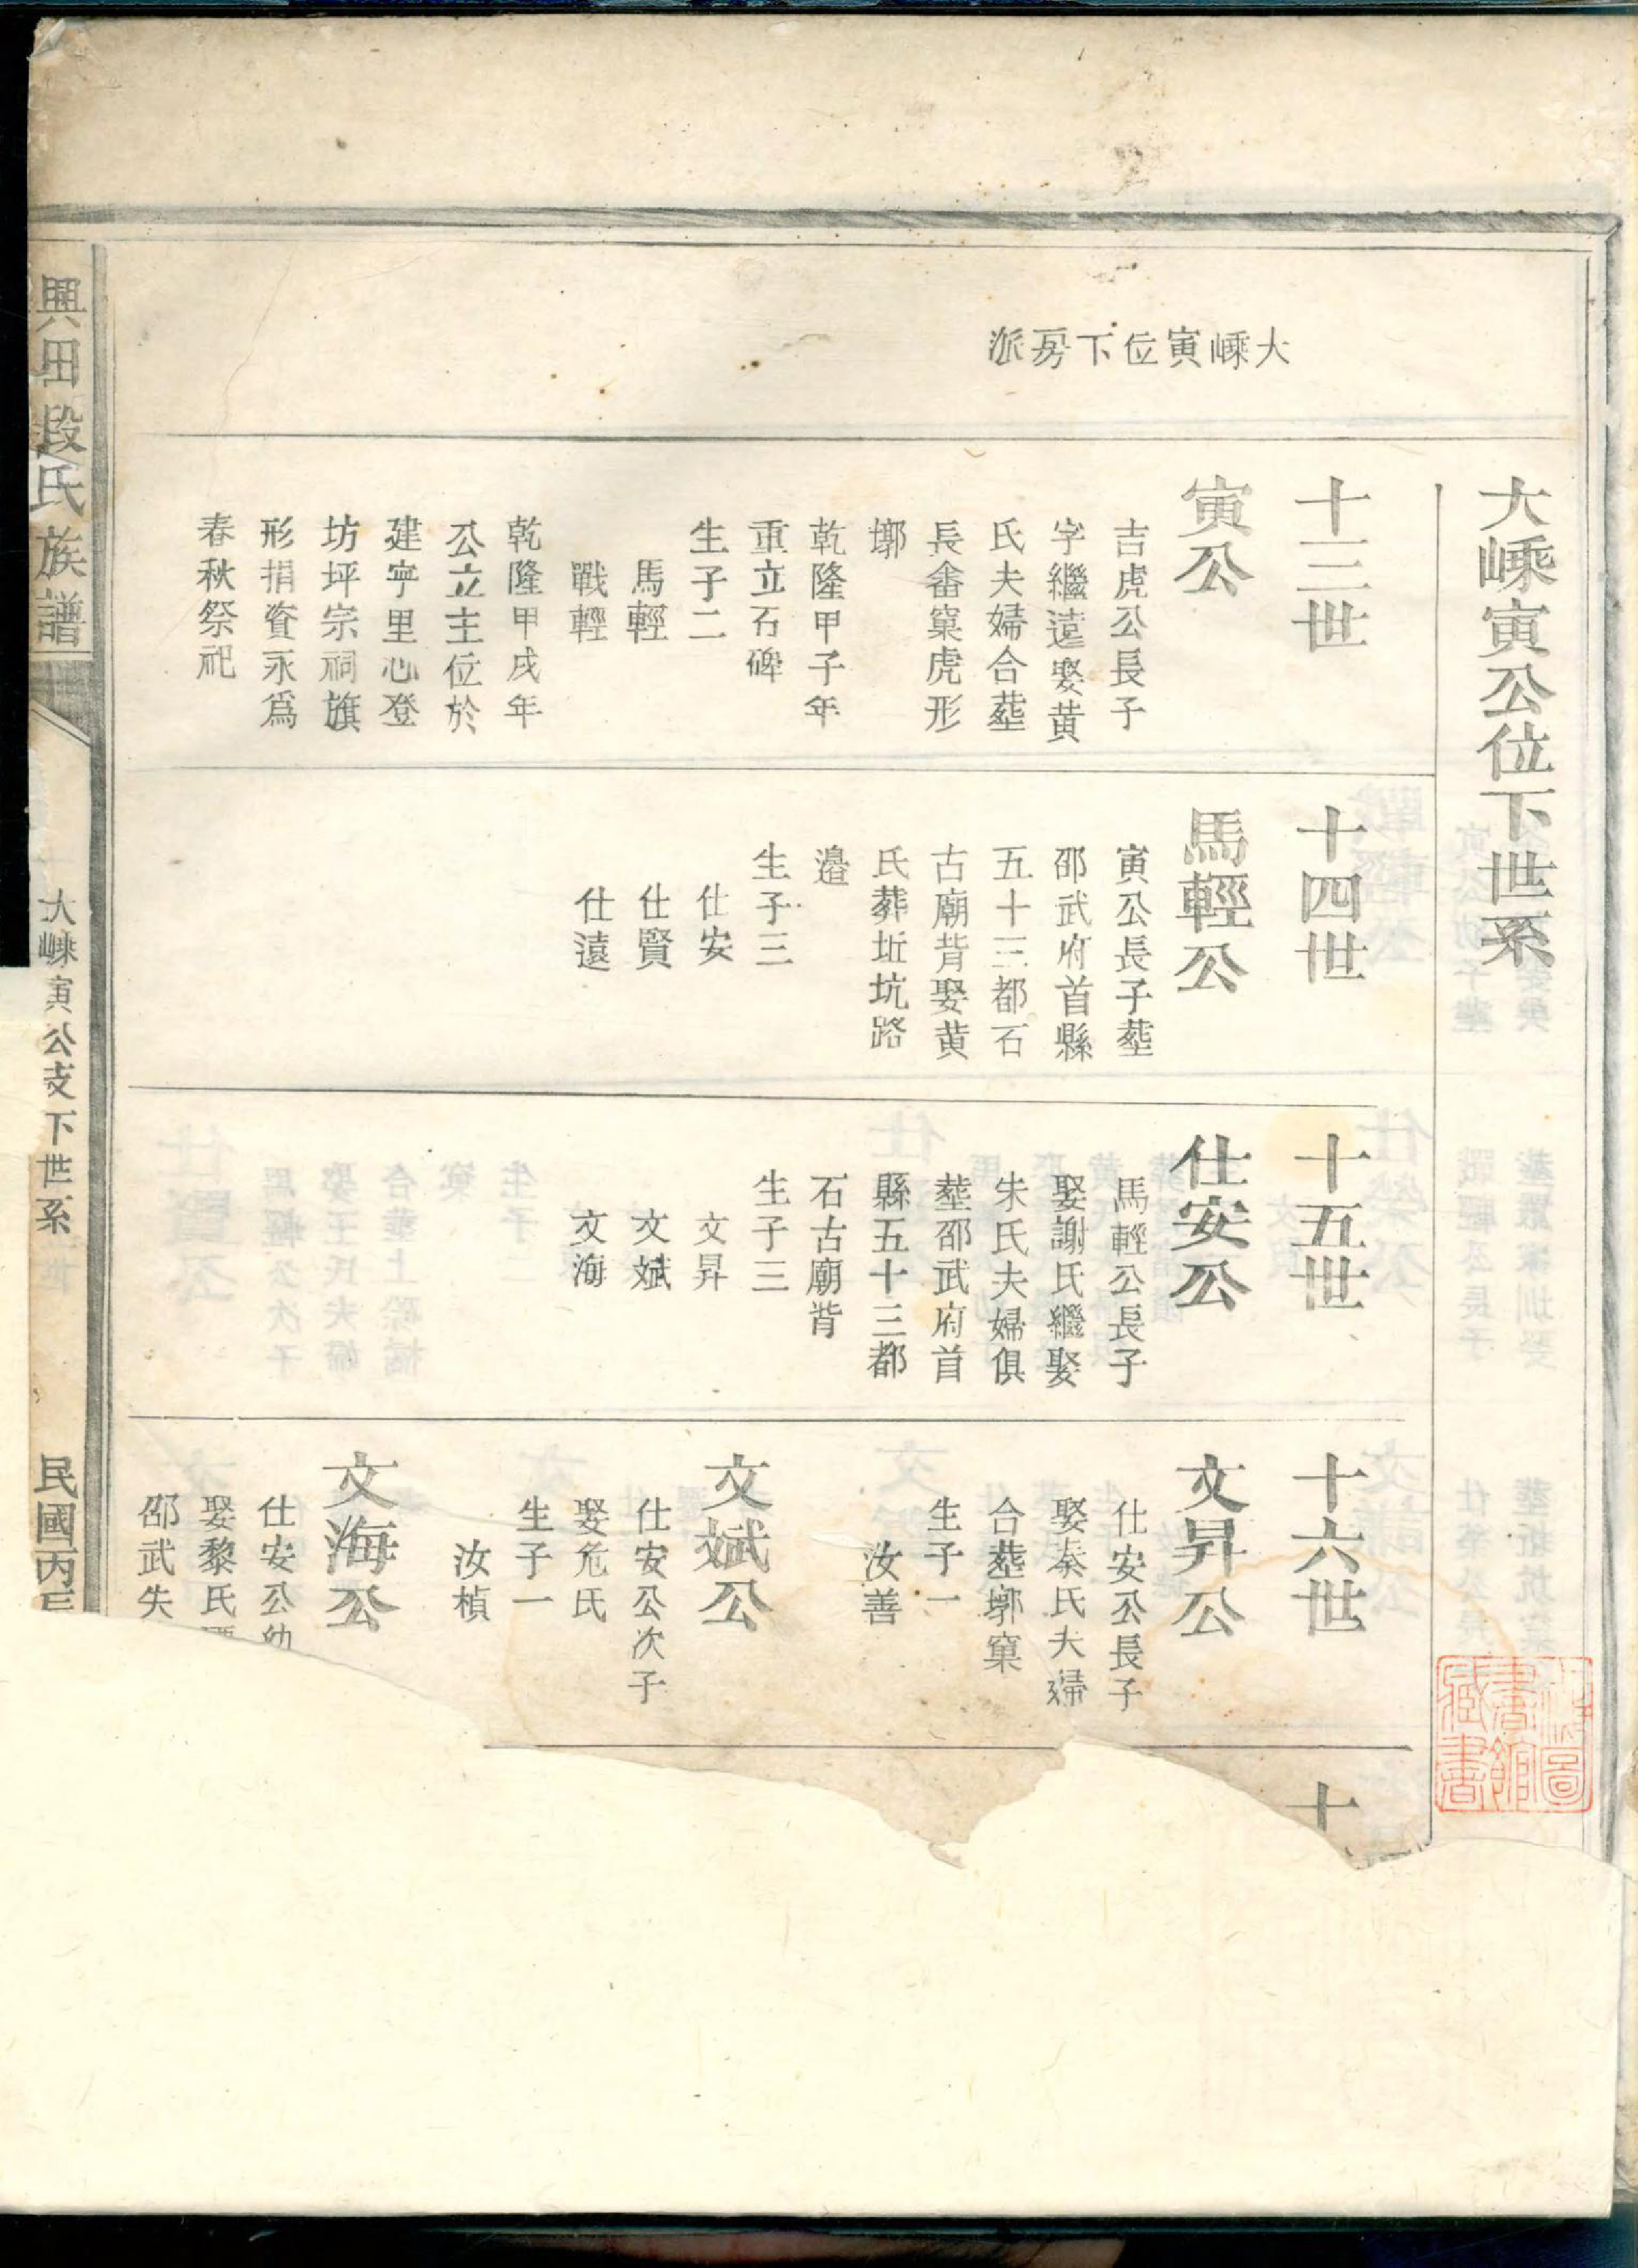 大嵊寅公位下世系
大嵊寅位下房派
十三世
寅公
吉虎公長子
字繼遠娶黄
氏夫婦合塟
長畲窠虎形
墎
乾隆甲子年
重立石碑
生子二
馬輕
戰輕
乾隆甲戌年
公立主位於
建宁里心登
坊坪宗祠旗
形捐資永爲
春秋祭祀
十四世
馬輕公
寅公長子塟
邵武府首縣
五十三都石
古廟背娶黄
氏葬坵坑路
邉
生子三
仕安
仕賢
仕遠
十五世
仕安公
馬輕公長子
娶謝氏繼娶
朱氏夫婦俱
塟邵武府首
縣五十三都
石古廟背
生子三
文昇
文斌
文海
十六世
文昇公
仕安公長子
娶秦氏夫婦
合塟墎窠
生子一
汝善
文斌公
仕安公次子
娶危氏
生子一
汝楨
文海公
仕安公幼
娶黎氏
邵武失
十
興田段氏族譜
大嵊寅公支下世系
民國丙
圖書館藏書